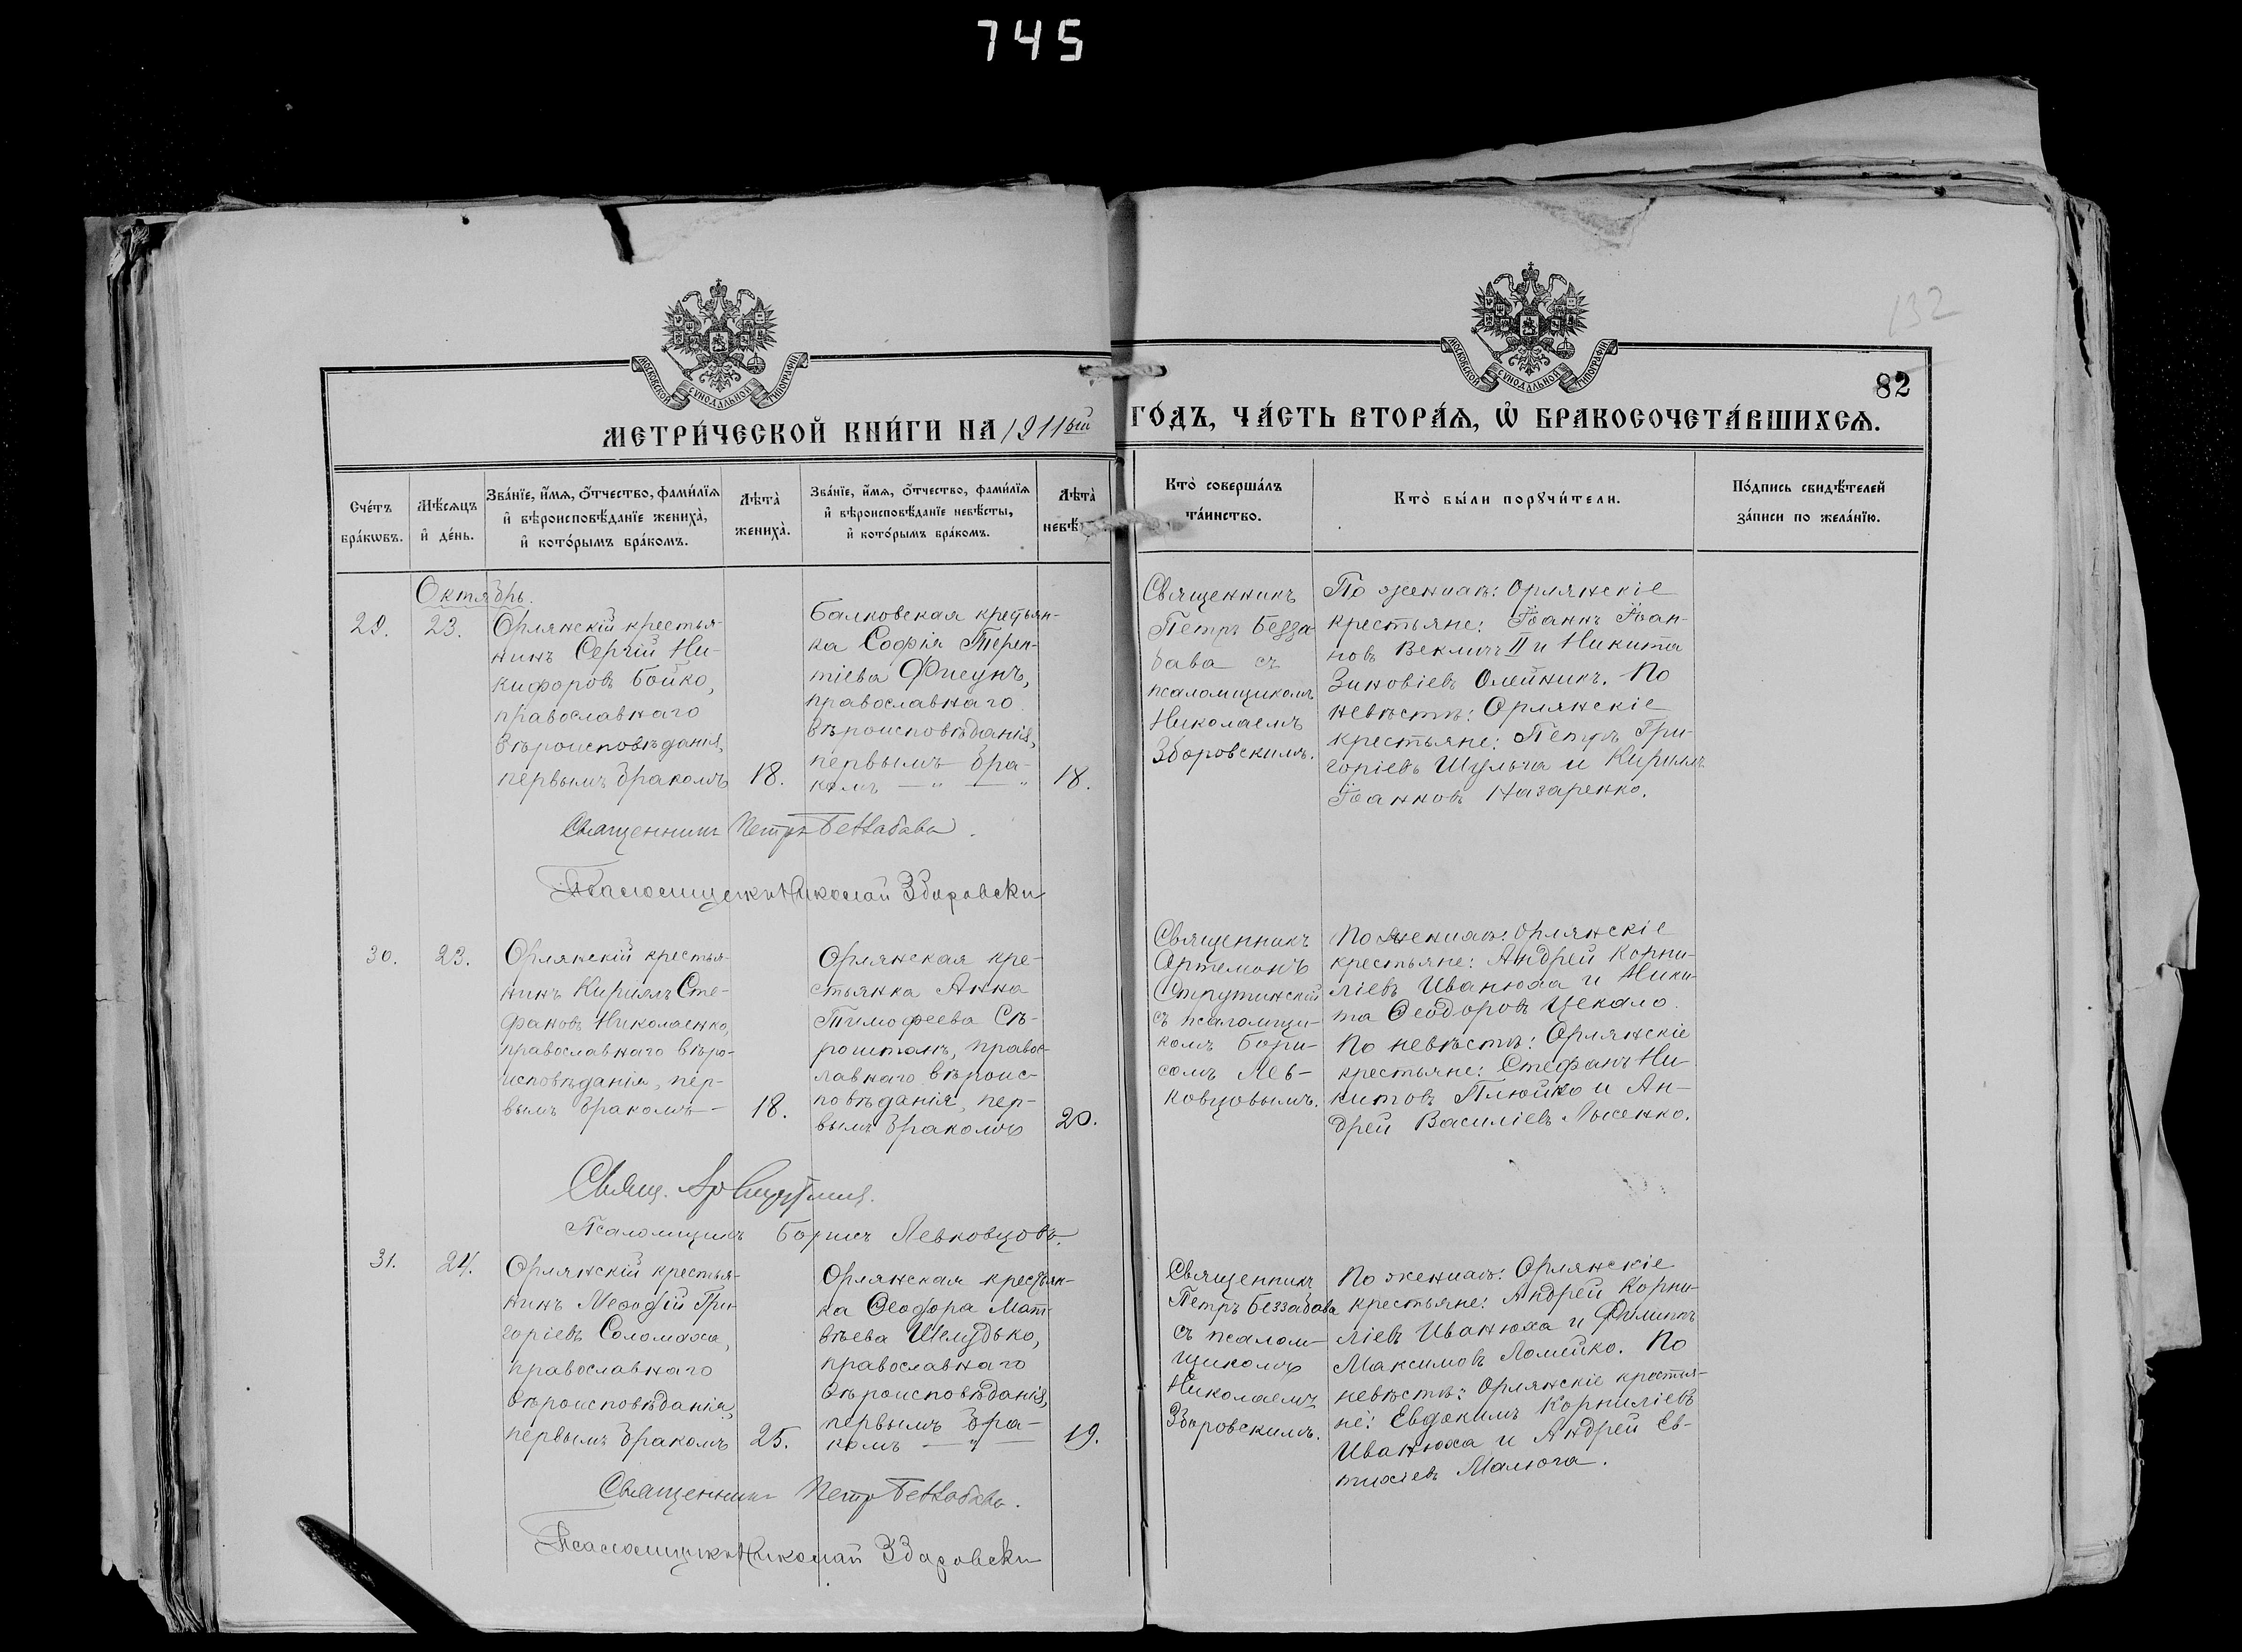 745
132
82
МОСКОВСКОЙ СѴНОДАЛЬНОЙ ТИПОГРАФІИ
МОСКОВСКОЙ СѴНОДАЛЬНОЙ ТИПОГРАФІИ
МЕТРИ́ЧЕСКОЙ КНИ́ГИ НА 1911ый ГО́ДЪ, ЧА́СТЬ ВТОРА́Ѧ, Ѽ БРАКОСОЧЕТА́ВШИХСѦ.
Сче́тъ бра́кѡвъ.
Мѣ́сѧцъ и҆ де́нь.
Зва́нїе, и҆́мѧ, ѻ҆́тчество, фами́лїѧ
и҆ вѣроисповѣ́данїе жениха̀,
и҆ кото́рымъ бра́комъ.
Лѣта̀
жениха̀.
Зва́нїе, и҆́мѧ, ѻ҆́тчество, фами́лїѧ
и҆ вѣроисповѣ́данїе невѣ́сты,
и҆ кото́рымъ бра́комъ.
Лѣта̀
невѣ́
Кто̀ соверша́лъ
та́инство.
Кто̀ бы́ли порꙋчи́тели.
По́дпись свидѣ́телей
за́писи по жела́нїю.
Октябрь.
29.
23.
Орлянскій крестья-
нинъ Сергій Ни-
кифоровъ Бойко,
православнаго
вѣроисповѣданія,
первымъ бракомъ
18.
Балковская крестьян-
ка Софія Терен-
тіева Фисунъ,
православнаго
вѣроисповѣданія,
первымъ бра-
комъ — " — "
18.
Священникъ
Петръ Безза-
бава съ
псаломщикомъ
Николаемъ
Зборовскимъ.
По женихѣ: Орлянскіе
крестьяне: Іоаннъ Іоан-
новъ Векличъ II и Никита
Зиновіевъ Олейникъ. По
невѣстѣ: Орлянскіе
крестьяне: Петръ Гри-
горіевъ Шульга и Кириллъ
Іоанновъ Назаренко.
Священникъ Петръ Беззабава.
Псаломщикъ Николай Зборовски
30.
23.
Орлянскій крестья-
нинъ Кириллъ Сте-
фановъ Николаенко,
православнаго вѣро-
исповѣданія, пер-
вымъ бракомъ —
18.
Орлянская кре-
стьянка Анна
Тимофеева Сѣ-
роштанъ, правос-
лавнаго вѣроис-
повѣданія, пер-
вымъ бракомъ
20.
Священникъ
Артемонъ
Струтинскій
съ псаломщи-
комъ Бори-
сомъ Лев-
ковцовымъ.
По женихѣ: Орлянскіе
крестьяне: Андрей Корни-
ліевъ Иванюха и Ники-
та Ѳеодоровъ Цекало.
По невѣстѣ: Орлянскіе
крестьяне: Стефанъ Ни-
китовъ Плюйко и Ан-
дрей Василіевъ Лысенко.
Свящ.
Псаломщикъ Борисъ Левковцовъ.
31.
24.
Орлянскій крестья-
нинъ Меѳодій Гри-
горіевъ Соломаха,
православнаго
вѣроисповѣданія,
первымъ бракомъ
25.
Орлянская крестьян-
ка Ѳеодора Мат-
вѣева Шелудько,
православнаго
вѣроисповѣданія,
первымъ бра-
комъ — " —
19.
Священникъ
Петръ Беззабава
съ псалом-
щикомъ
Николаемъ
Зборовскимъ.
По женихѣ: Орлянскіе
крестьяне: Андрей Корни-
ліевъ Иванюха и Филиппъ
Максимовъ Ломейко. По
невѣстѣ: Орлянскіе крестья-
не: Евдокимъ Корниліевъ
Иванюха и Андрей Ев-
тихіевъ Малюга.
Священникъ Петръ Беззабава.
Псаломщикъ Николай Зборовски